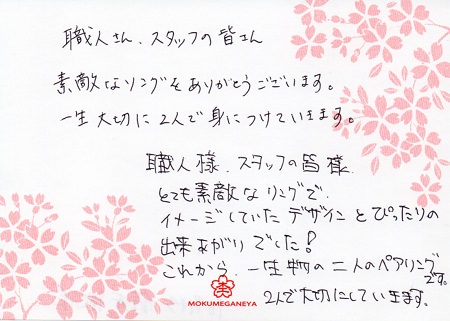 職人さん、スタッフの皆さん
素敵なリングをありがとうございます。
一生大切に2人で身につけていきます。
職人様、スタッフの皆様
とても素敵なリングで、
イメージしていたデザインとぴったりの
出来あがりでした!
これから、一生物の二人のペアリング
です。
2人で大切にしていきます。
MOKUMEGANEYA